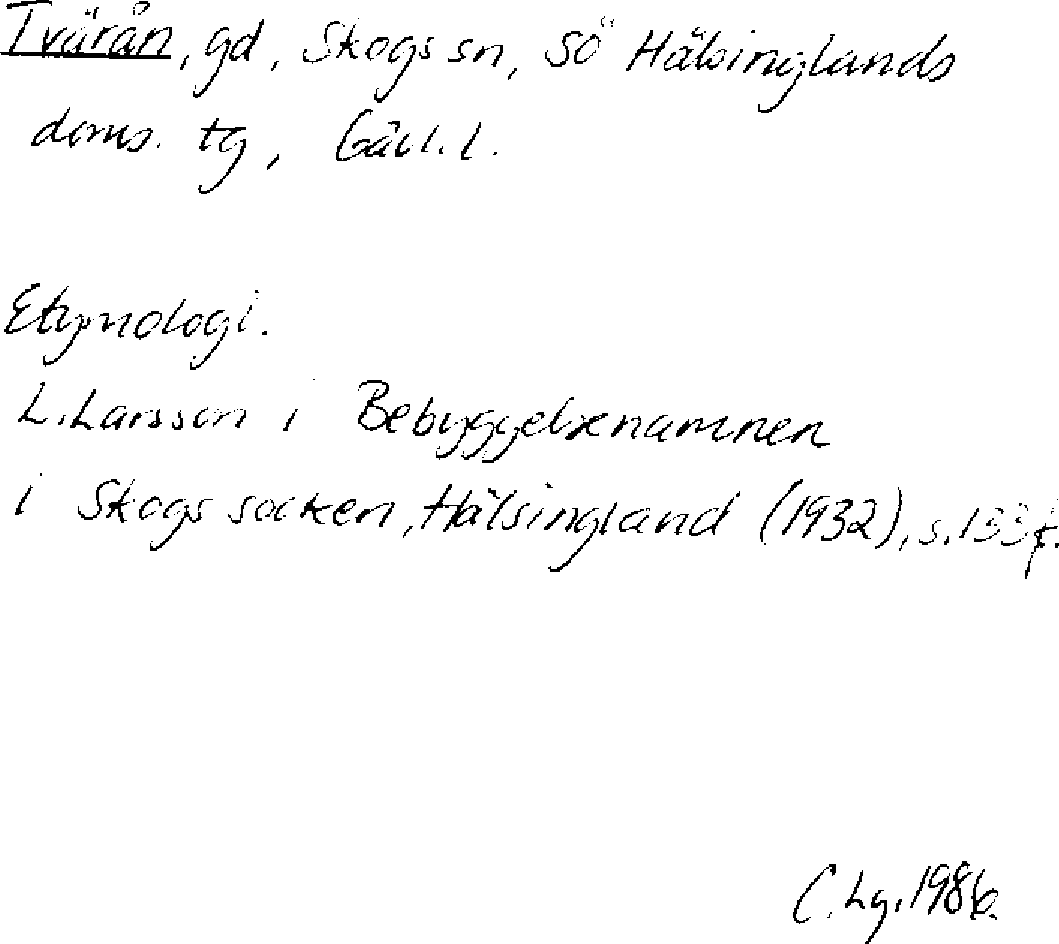 Tvärån, gd, Skogs sn, SÖ Hälsinglands
doms. tg, Gävl.l.
Etymologi.
L. Larsson i Bebyggelsenamnen
i Skogs socken, Hälsingland (1932), s. 133 f.
C. Lg. 1986.